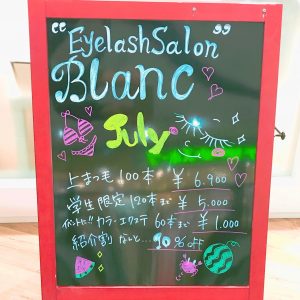 "EyelashSalon"
Blanc
July
上まつ毛 100本 ¥ 6.900
学生限定 120本まで ¥ 5.000
カラーエクステ 60本まで ¥ 1.000
紹介割 など... 90% off